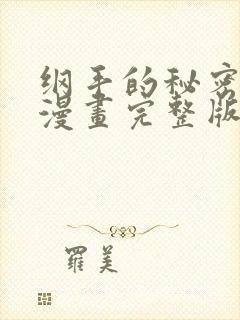 纲手的秘密
漫畫完整版
羅美